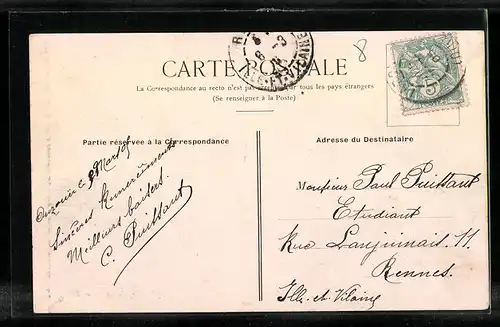 CARTE POSTALE
La Correspondance au recto n'est pas acceptée par tous les pays étrangers
(Se renseigner à la Poste)
Partie réservée à la Correspondance
Adresse du Destinataire
8
5
Mars
Sincères Remerciements
Meilleurs baisers
C. Puissant
Monsieur Paul Puissant
Etudiant
Rue Lanjuinais. 11
Rennes.
Ille-et-Vilaine